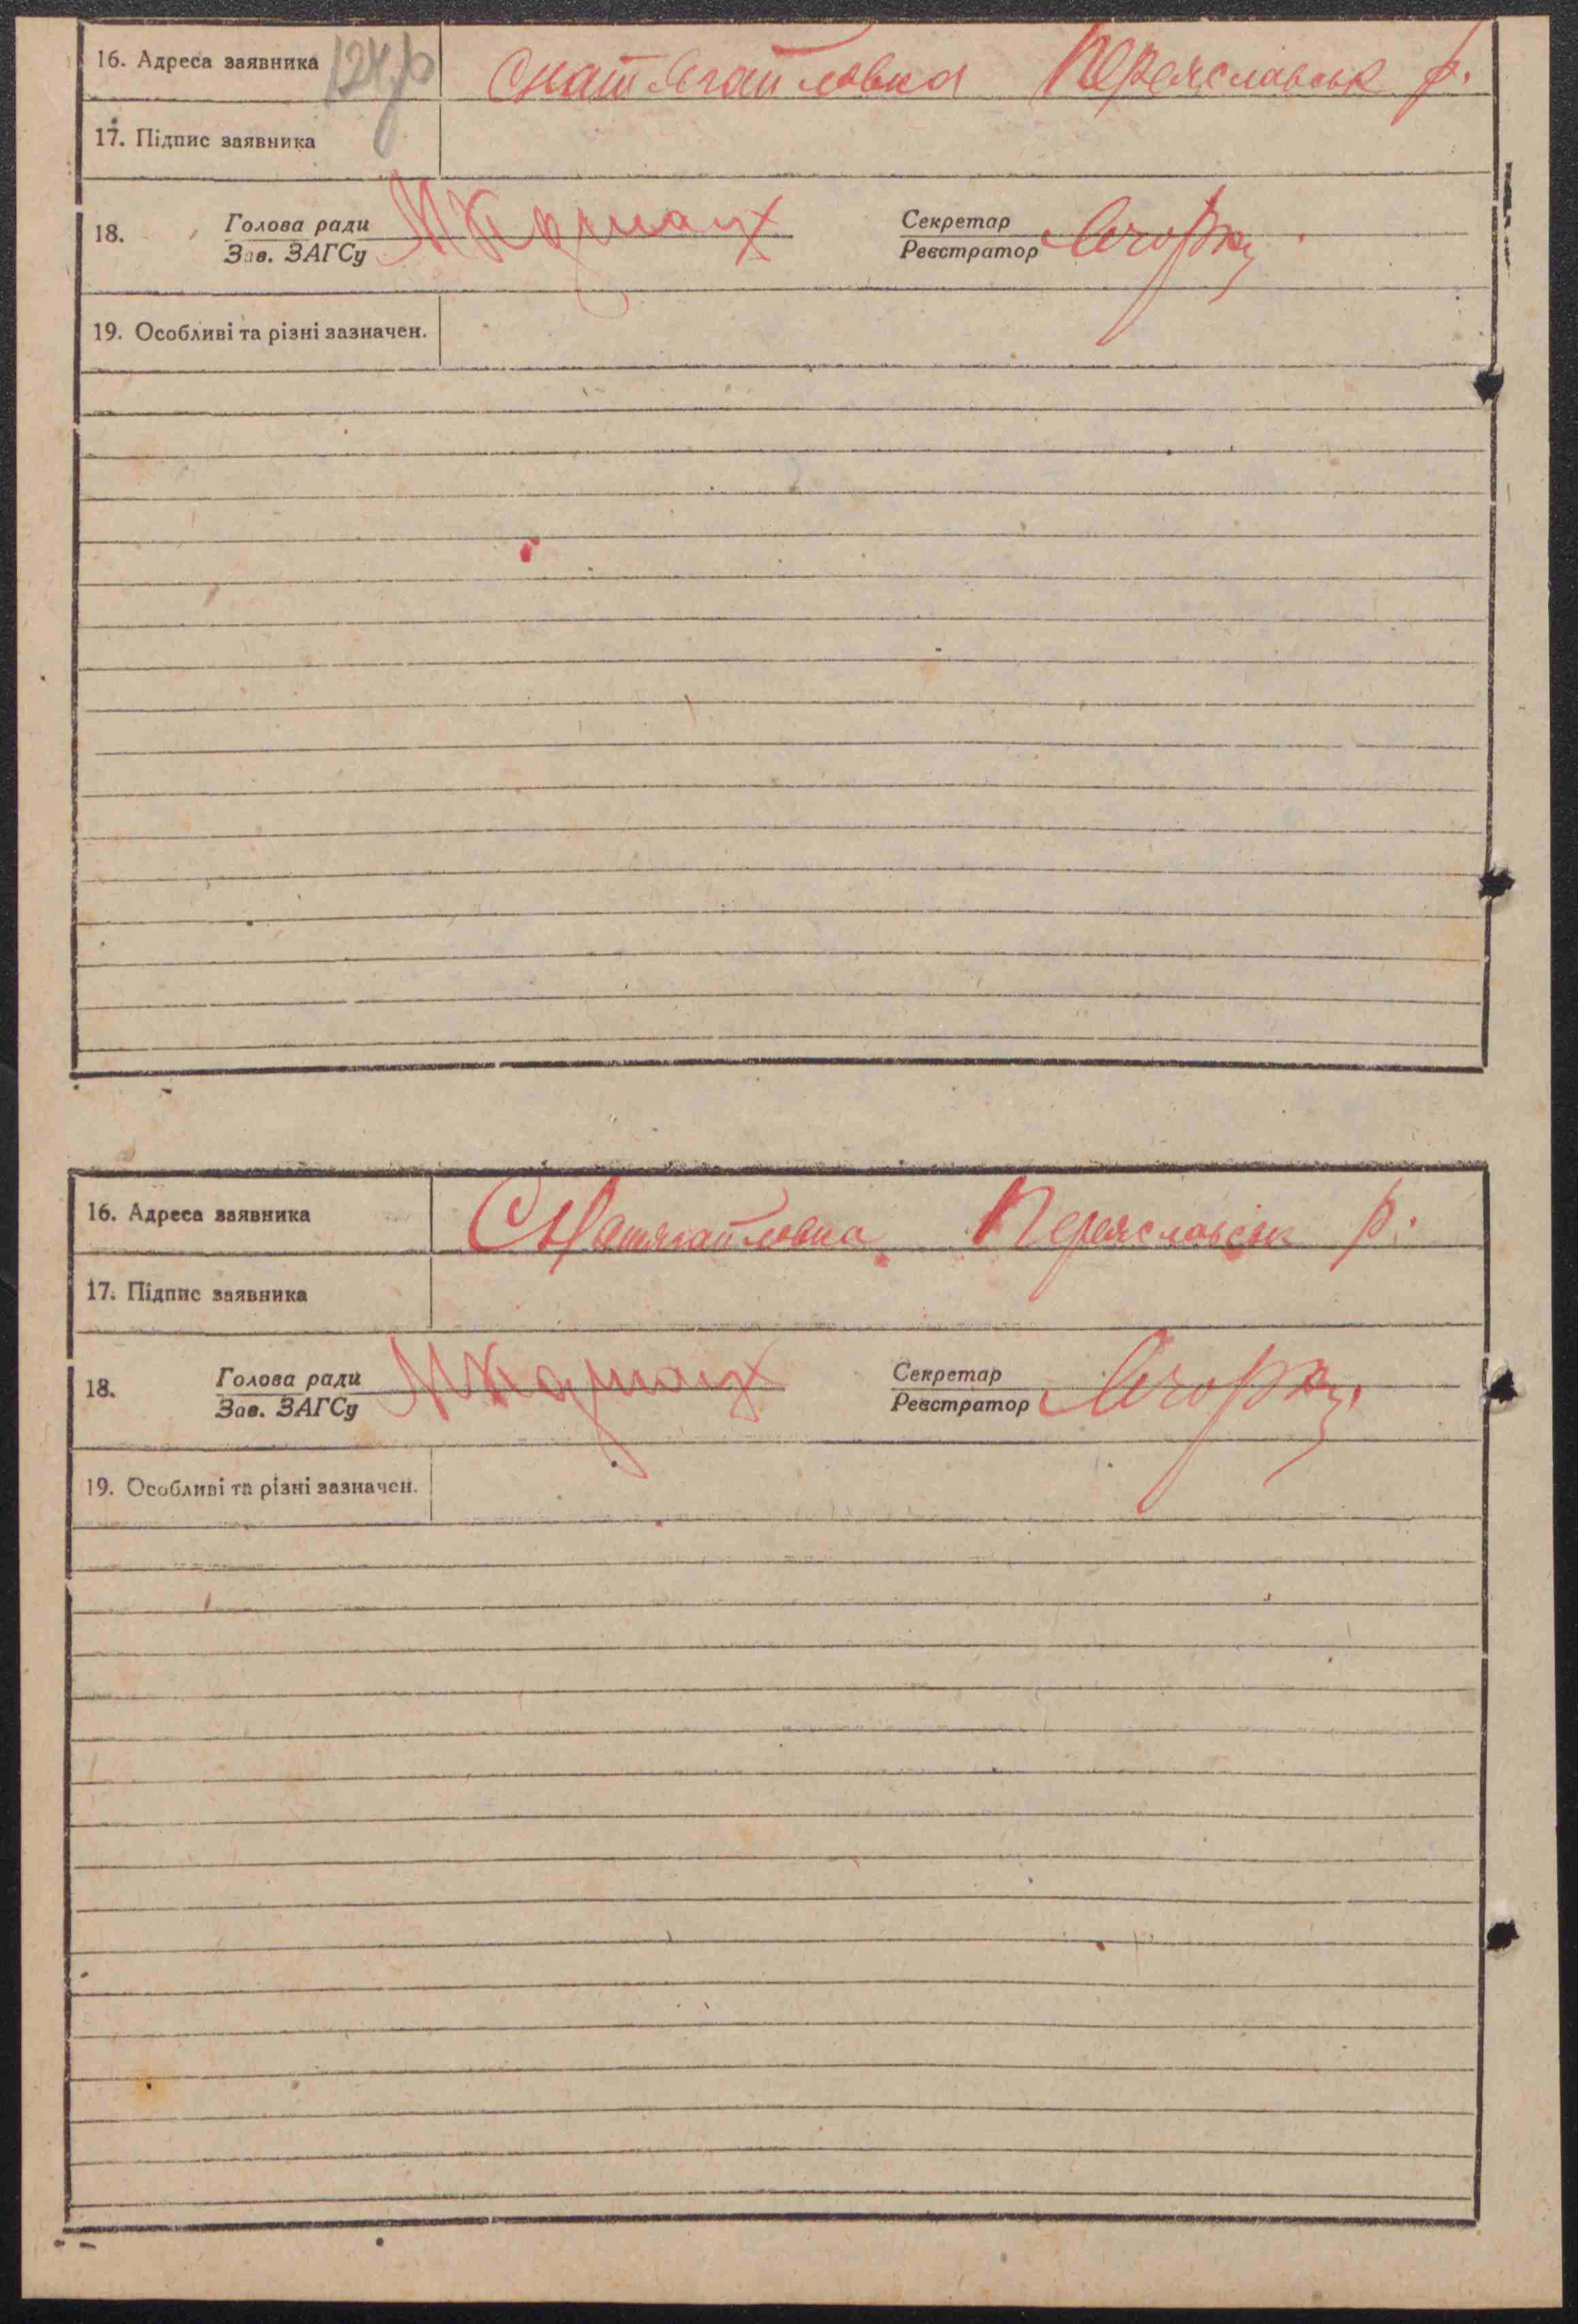 16. Адреса заявника С Натягайловка Переяславськ р.
17. Підпис заявника
18. Голова ради Секретар
Зав. ЗАГСу Реєстратор
19. Особливі та різні зазначен.
16. Адреса заявника С Натягайловка Переяславськ р.
17. Підпис заявника
18. Голова ради Секретар
Зав. ЗАГСу Реєстратор
19. Особливі та різні зазначен.